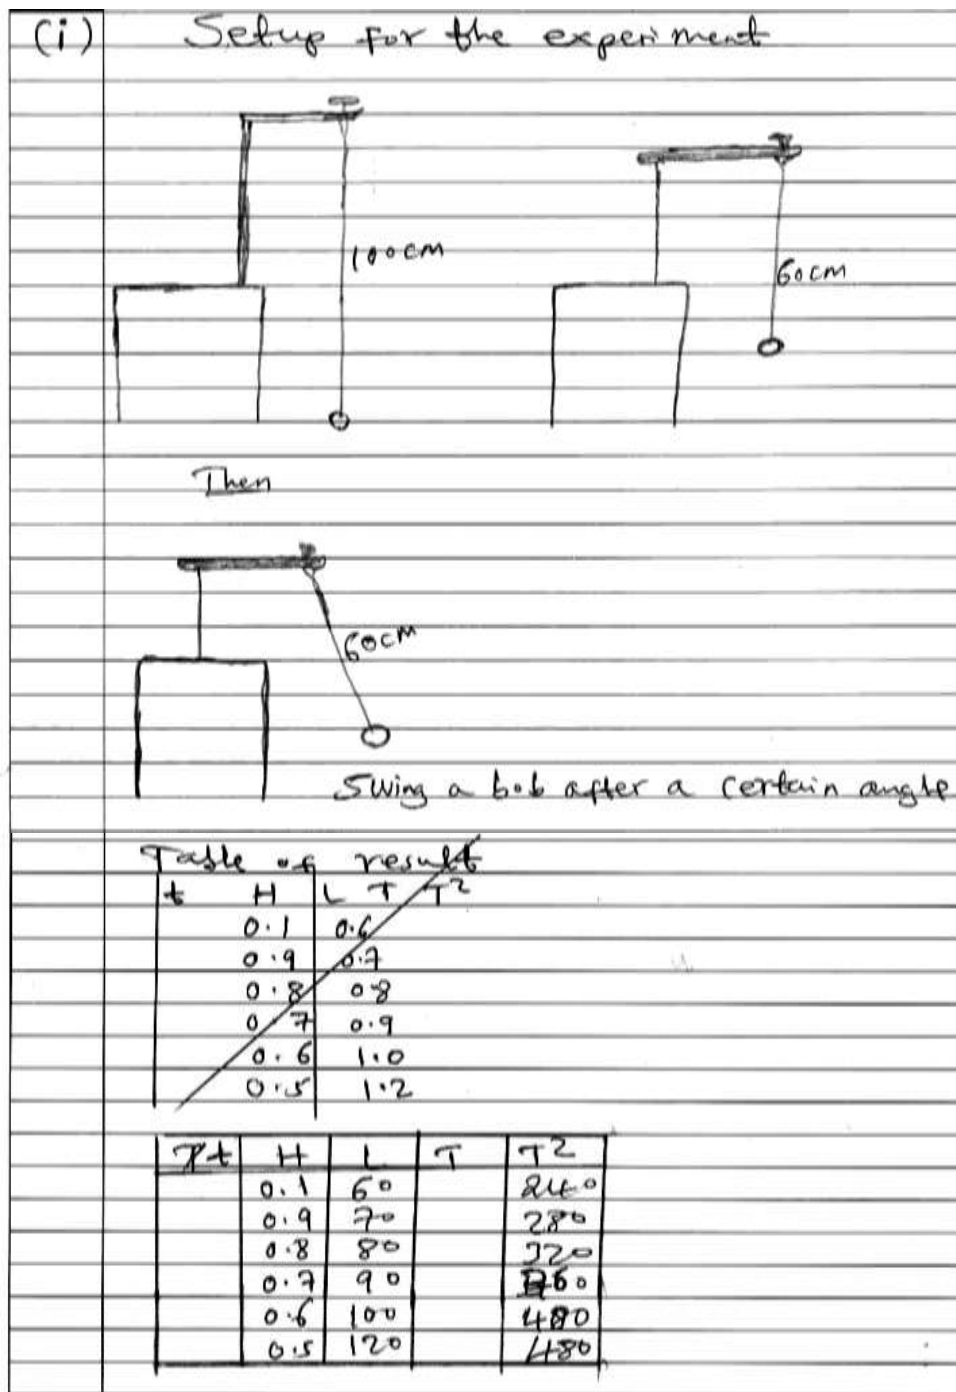 (i) Setup for the experiment
100cm
60cm
Then
60cm
Swing a bob after a certain angle
Table of result
t H L T T2
0.1 0.6
0.9 0.7
0.8 0.8
0.7 0.9
0.6 1.0
0.5 1.2
t H L T T2
0.1 60 240
0.9 70 280
0.8 80 320
0.7 90 360
0.6 100
0.5 120 480